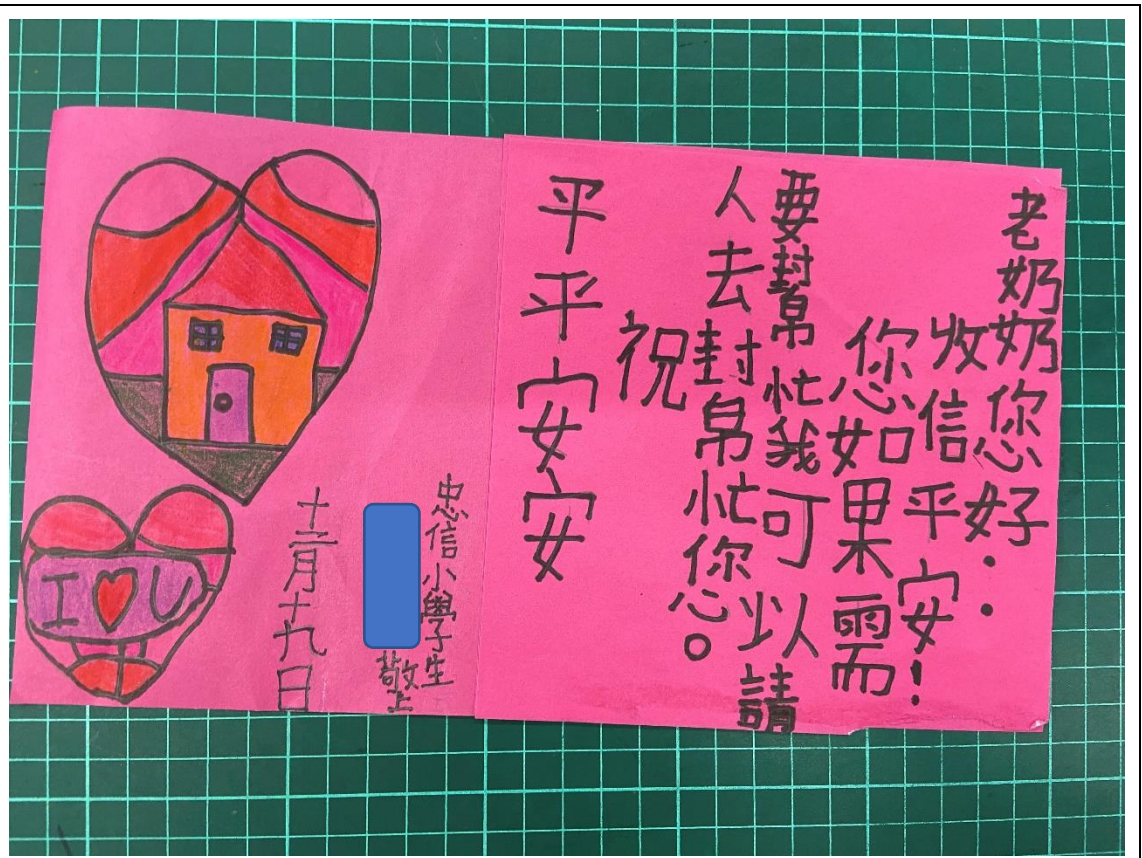 老奶奶您好：
收信平安！
您如果需
要幫忙我可以請
人去幫忙您。
祝
平平安安
忠信小學生
敬上
十二月十九日
I ♥ U